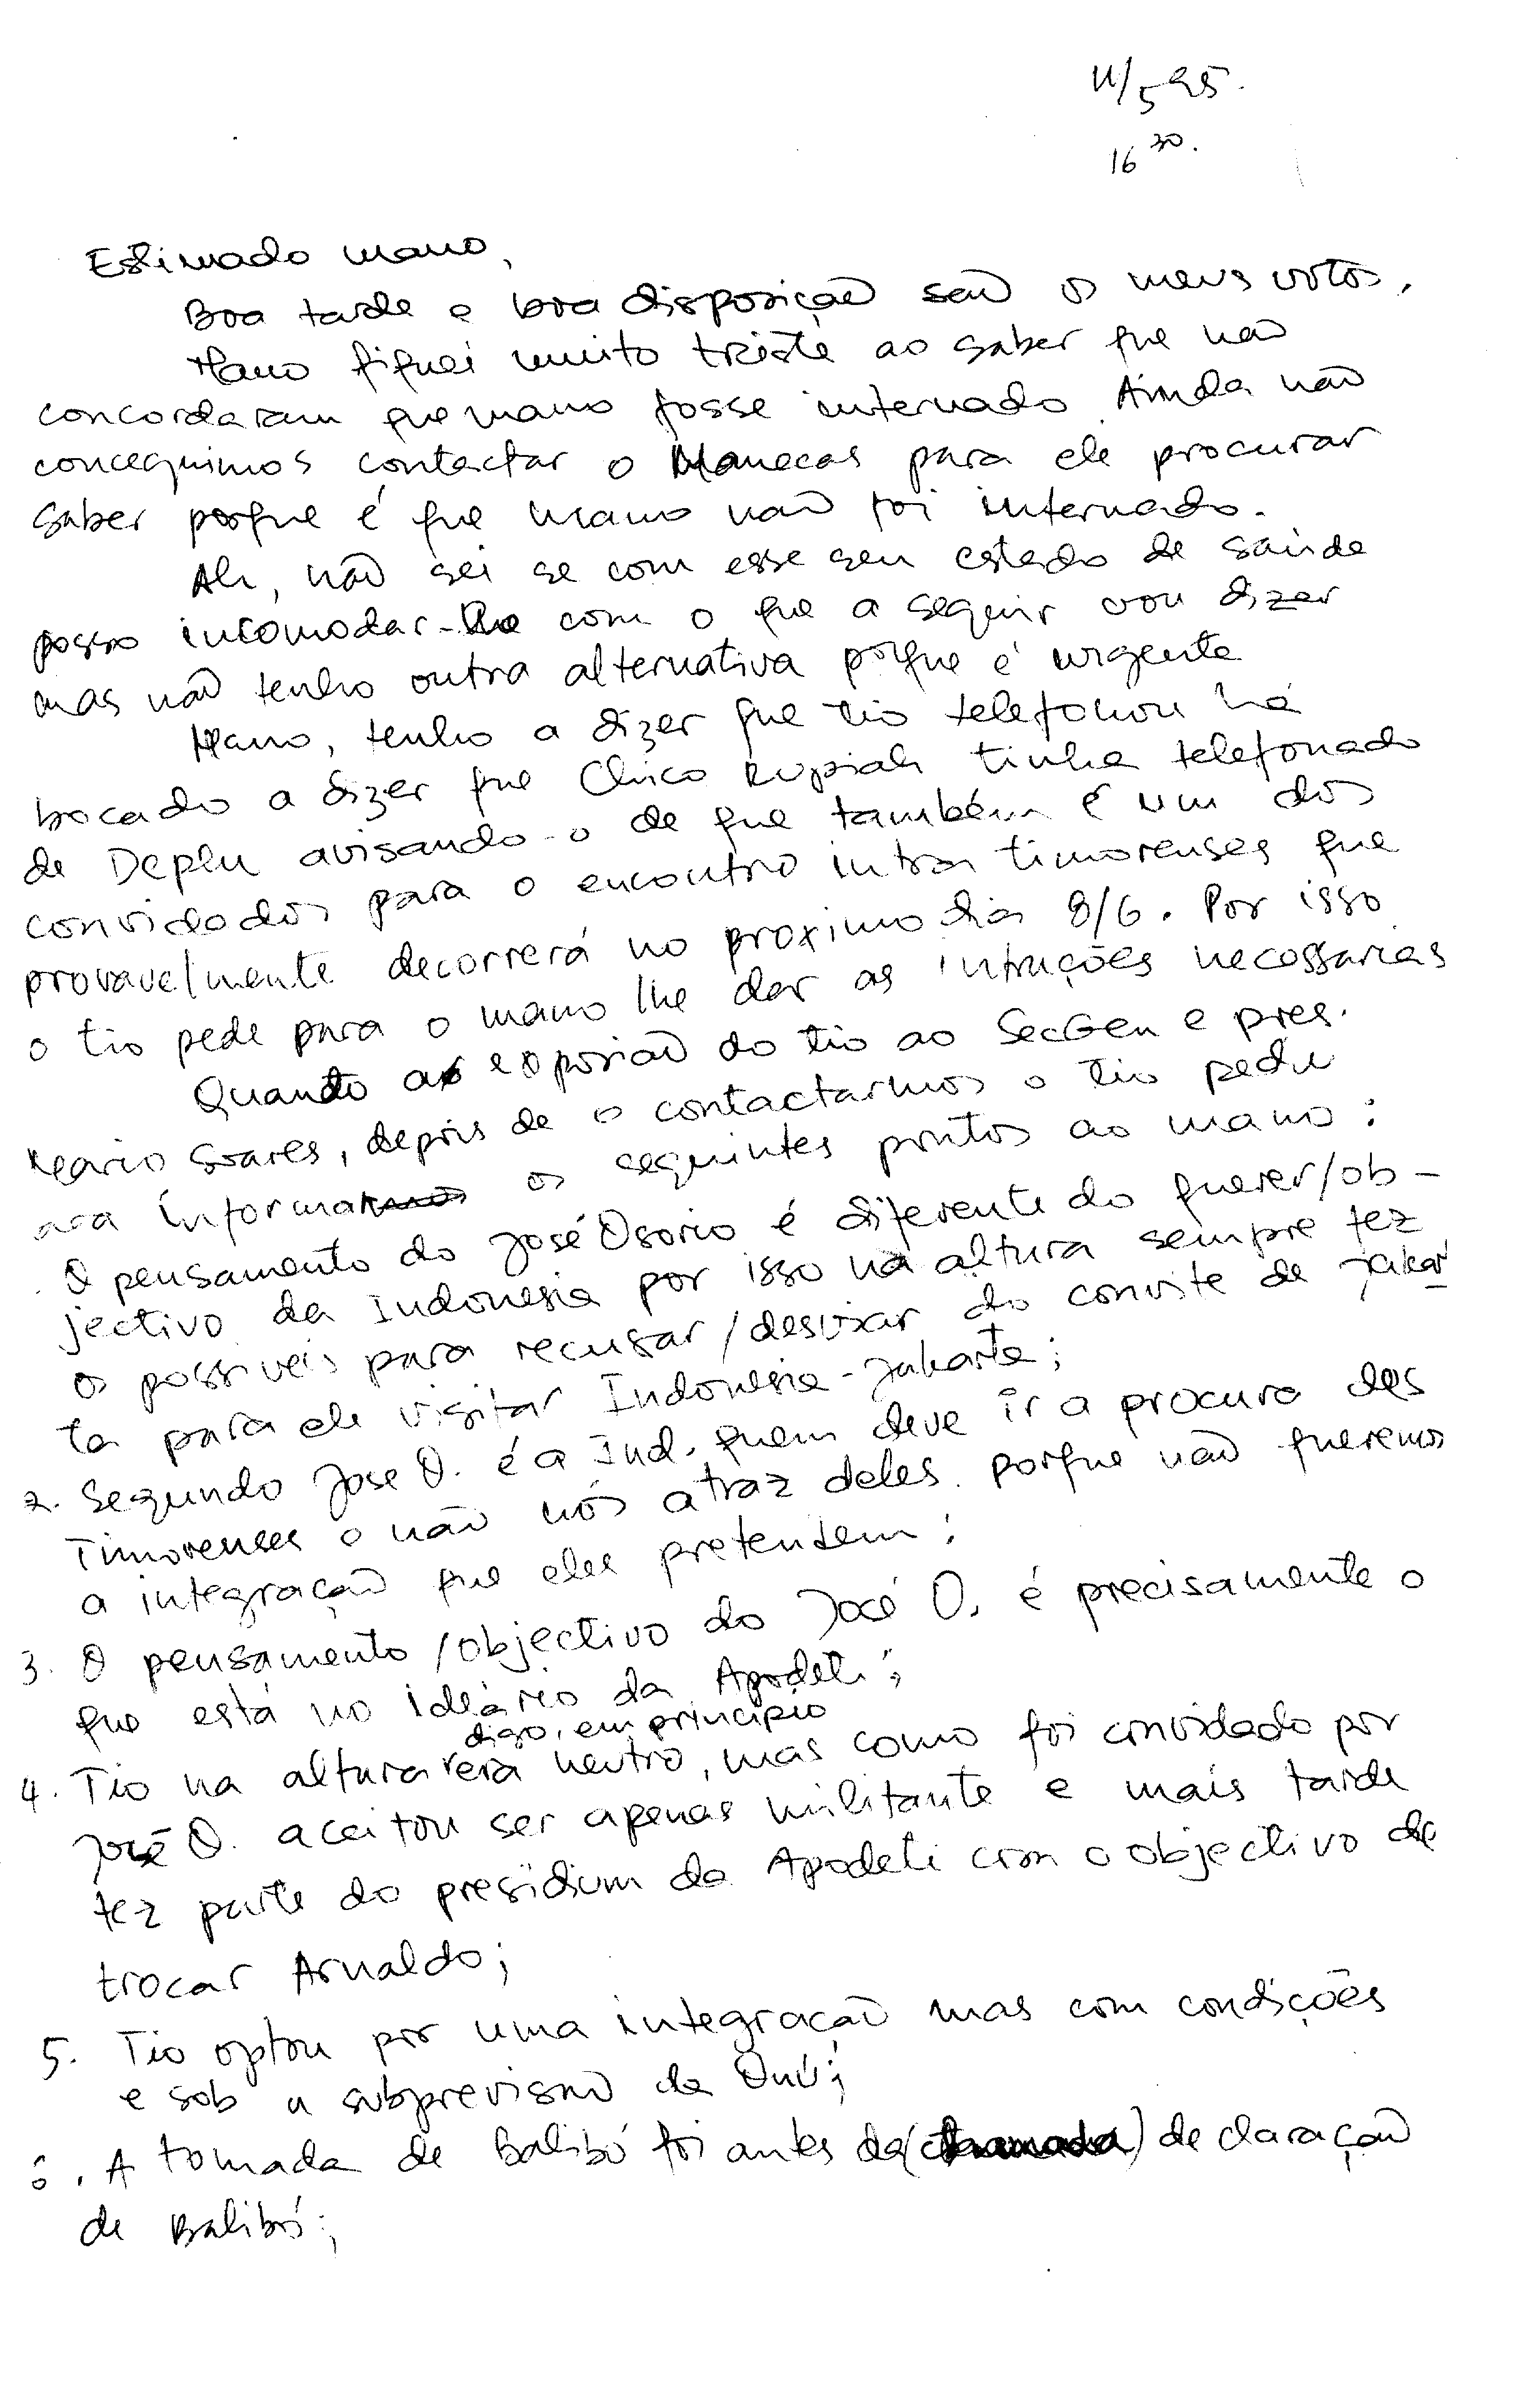 11/5 95.
16 30.
Estimado mano,
Boa tarde e boa disposição são os meus votos.
Mano fiquei muito triste ao saber que não
concordaram que mano fosse internado. Ainda não
conceguimos contactar o Manecas para ele procurar
saber porque é que mano não foi internado.
Ah, não sei se com esse seu estado de saúde
posso incomodar-lhe com o que a seguir vou dizer
mas não tenho outra alternativa porque é urgente
Mano, tenho a dizer que tio telefonou há
bocado a dizer que Chico Rupiah tinha telefonado
de Deplu avisando-o de que também é um dos
convidados para o encontro intra timorenses que
provavelmente decorrerá no proximo dia 8/6. Por isso
o tio pede para o mano lhe dar as intruções necessarias
Quanto a exposição do tio ao SecGen e pres.
Mario Soares, depois de o contactarmos o tio pediu
ara informar os seguintes pontos ao mano:
O pensamento do José Osorio é diferente do querer/ob-
jectivo da Indonesia por isso na altura sempre fez
os possiveis para recusar/desvixar do convite de Jakar
ta para ele visitar Indonesia-Jakarta;
2. Segundo Jose O. é a Ind. quem deve ir a procura dos
Timorenses e não nós atraz deles porque não queremos
a integração que eles pretendem;
3. O pensamento/objectivo do José O. é precisamente o
que está no ideário da Apodeti;
digo, em principio
4. Tio na altura era neutro, mas como foi convidado por
José O. aceitou ser apenas militante e mais tarde
fez parte do presidium da Apodeti com o objectivo de
trocar Arnaldo;
5. Tio optou por uma integração mas com condições
e sob a subprevisão da Onu;
6. A tomada de Balibó foi antes da ( ) declaração
de Balibó;